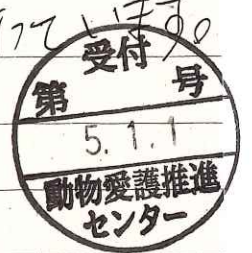 っています。
受付
第 号
5.1.1
動物愛護推進
センター